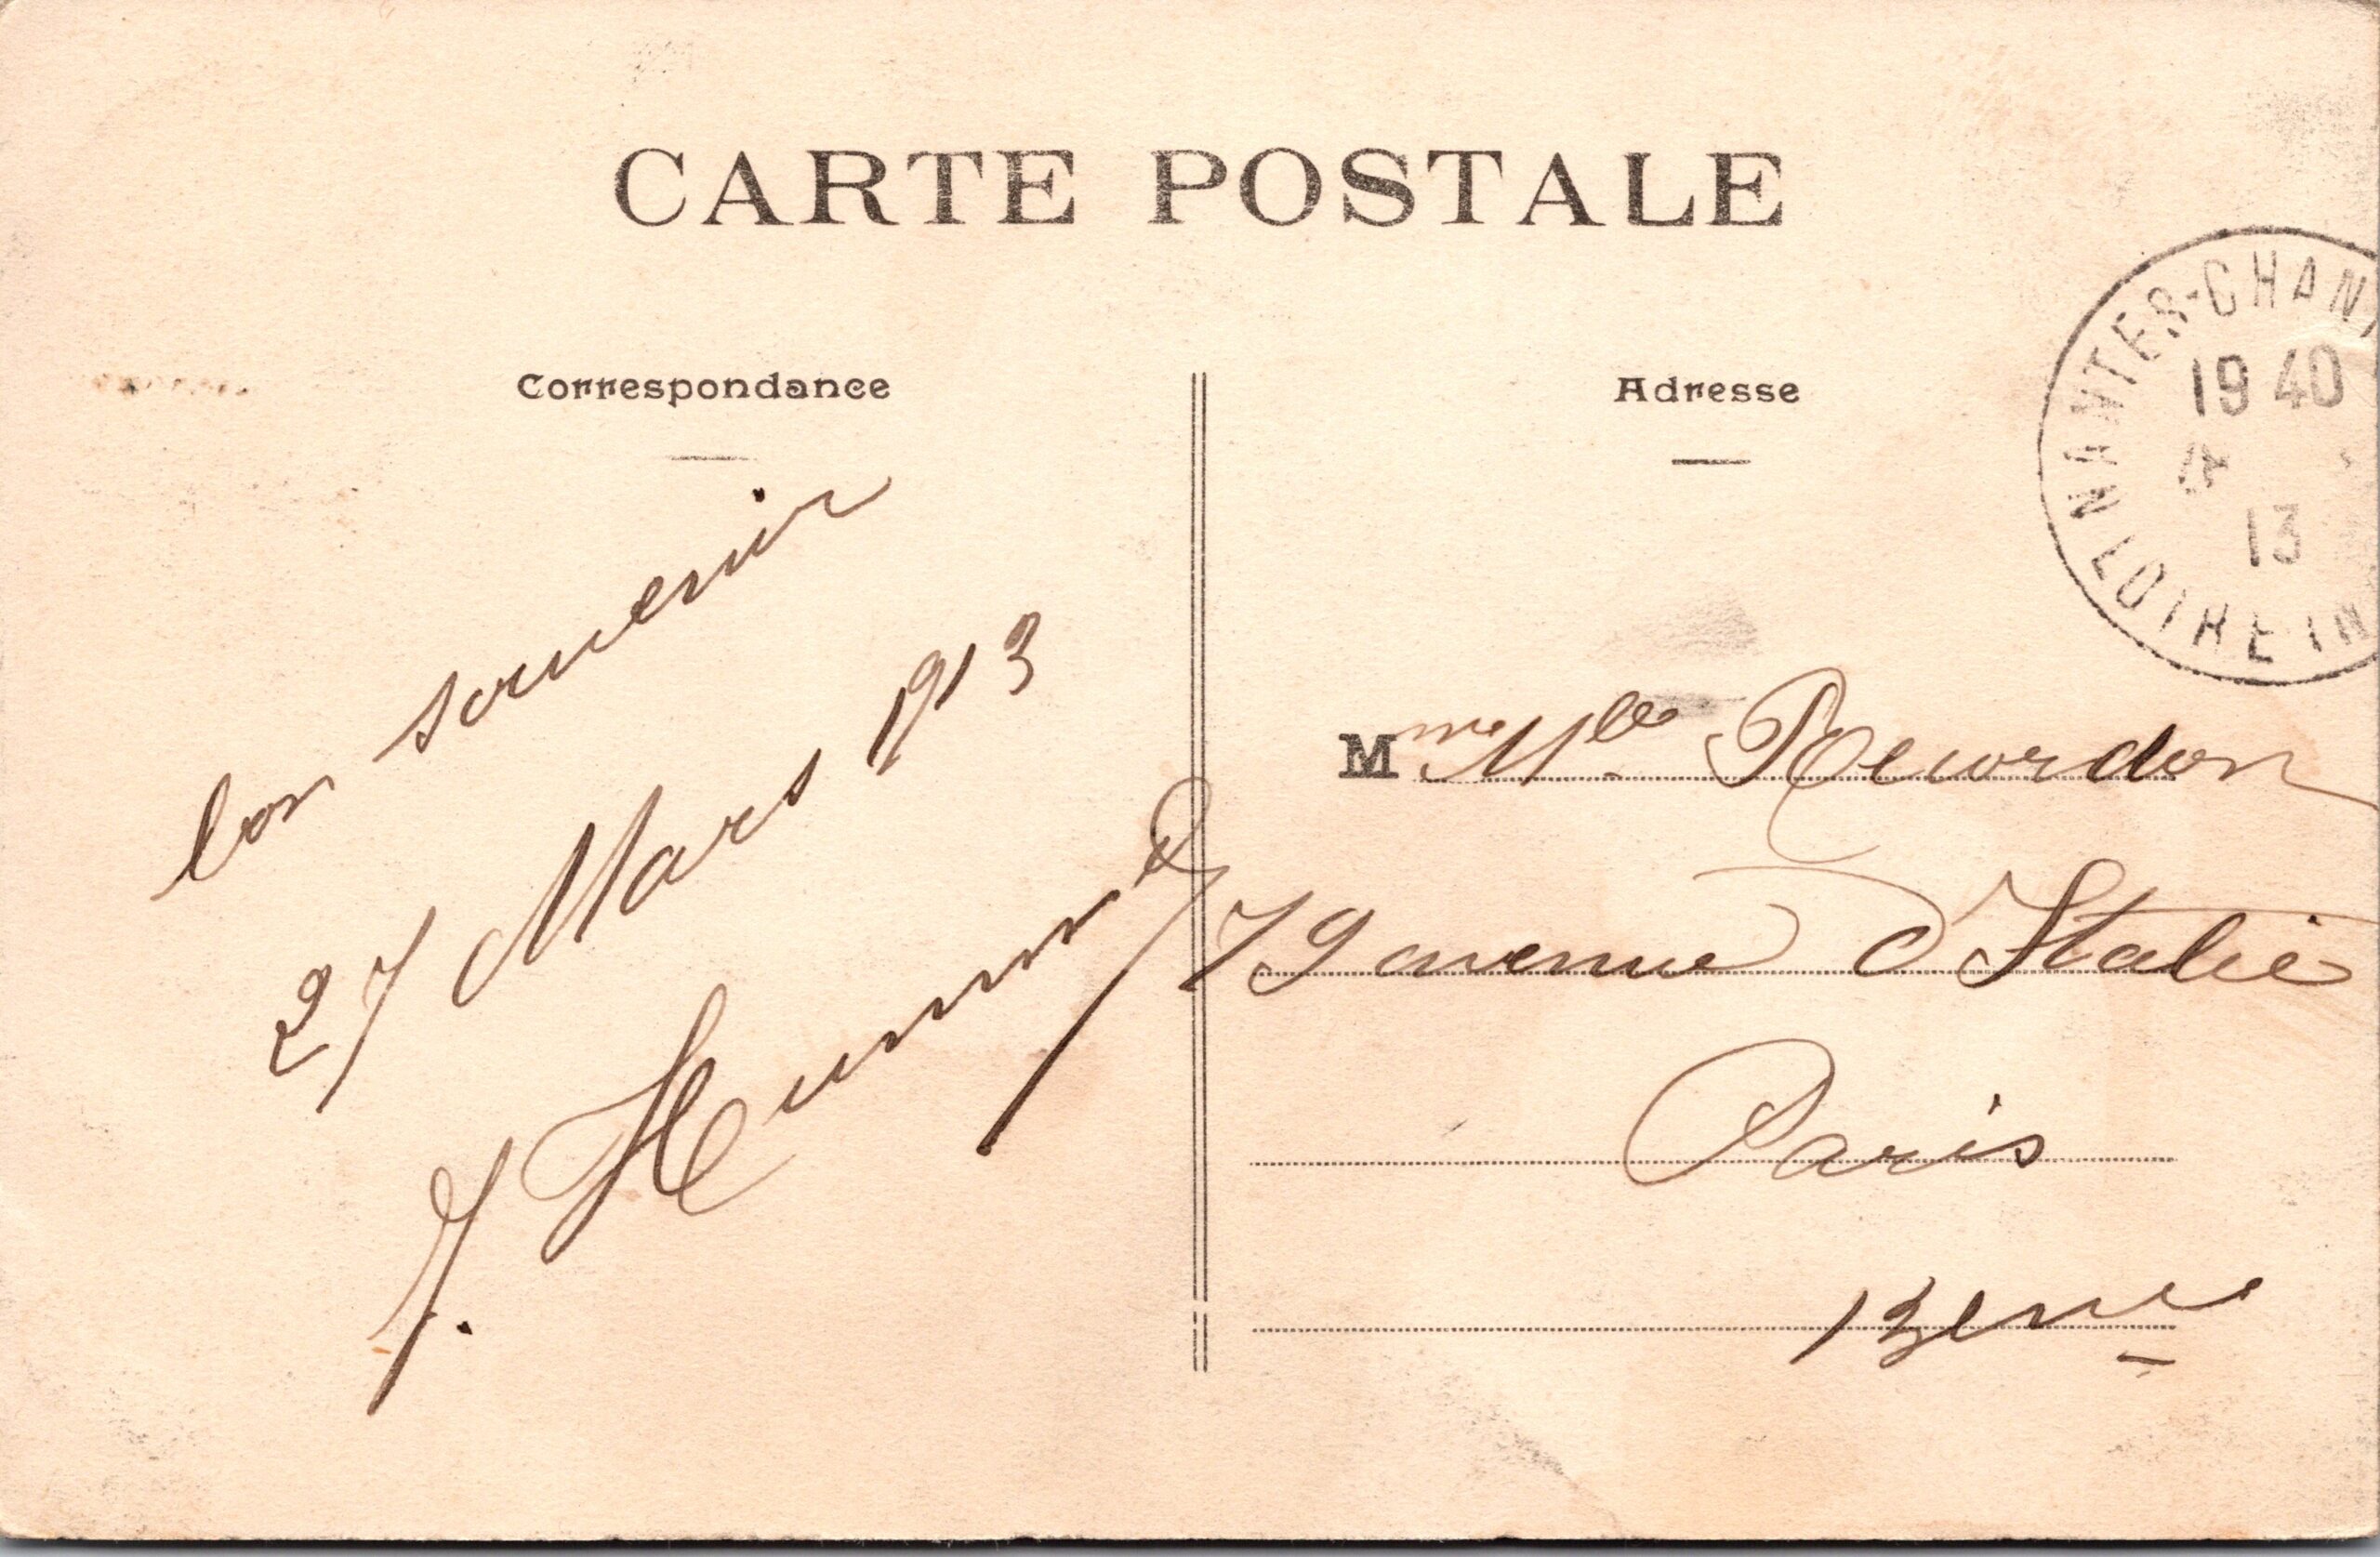 CARTE POSTALE
Correspondance
bon souvenir
27 Mars 1913
J.
Adresse
Mme Mlle
79 avenue d'Italie
Paris
13eme
NANTES-CHAN
19 40
13
LOIRE IN